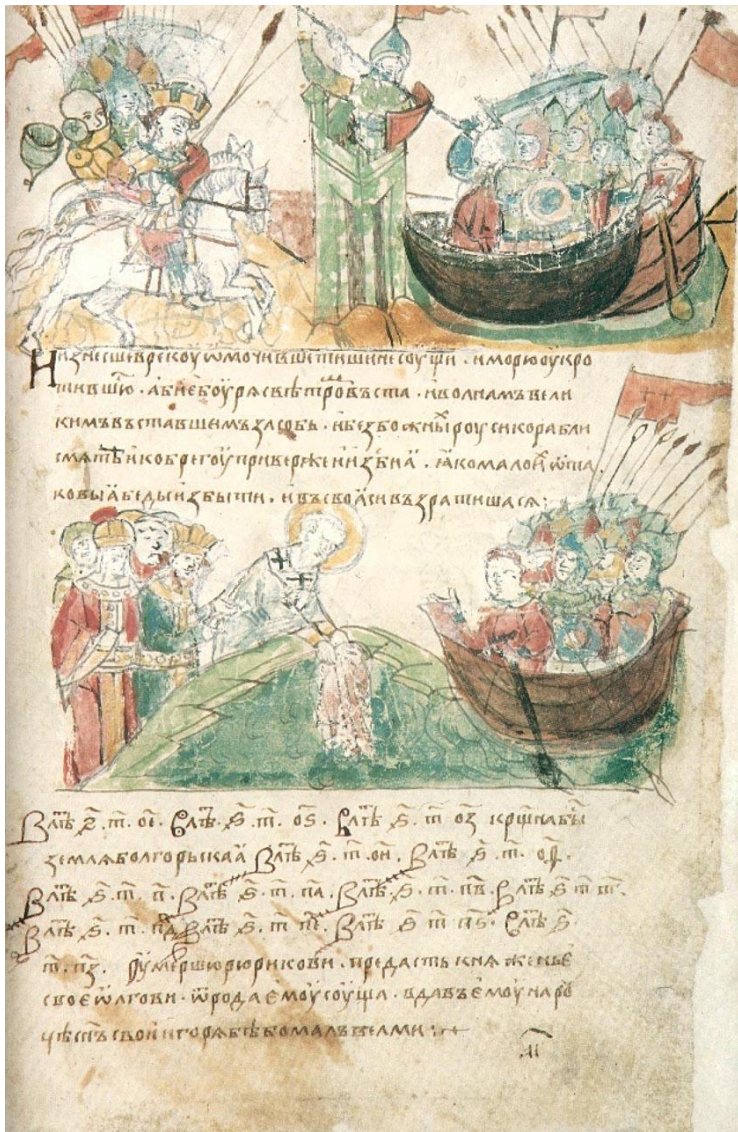 Низнесше в рекоу ѡмочивше тишине соущи . и морю оукро
тившюⷭ . абиеⷠ боурѧ с вѣтроⷨ въста . и волнамъ вели
кимъ въставшемъ засобь . и безбожныⷯ роуси корабли
смѧте и к берегоу приверже и изби а . ꙗко мало иⷯ ѿ та
ковыа беды избыти . и въ своѧси възратишасѧ :
В лⷮѣ ѕ҃ . т҃ . ое҃ . В лⷮѣ . ѕ҃ . т҃ . оѕ҃ . В лⷮѣ ѕ҃ . т҃ оз҃ крщ҃на быⷭ
землѧ болгорьскаа В лⷮѣ ѕ҃ . т҃ . ои҃ . В лⷮѣ ѕ҃ . т҃ . оѳ҃ .
В лⷮѣ ѕ҃ . т҃ . п҃ . В лⷮѣ ѕ҃ . т҃ . па҃ . В лⷮѣ . ѕ҃ . т҃ . пв҃ . В лⷮѣ ѕ҃ т҃ пг҃ .
В лⷮѣ ѕ҃ . т҃ . пд҃ В лⷮѣ ѕ҃ . т҃ пе҃ . В лⷮѣ ѕ҃ т҃ пѕ҃ . В лⷮѣ ѕ҃
т҃ . пз҃ . оумершю рюрикови . предасть кнѧженье
свое ѡлгови . ѿ рода емоу соуща . вдавъ емоу на роу
цѣ сн҃ъ свои игорѧ бѣ бо малъ велми :